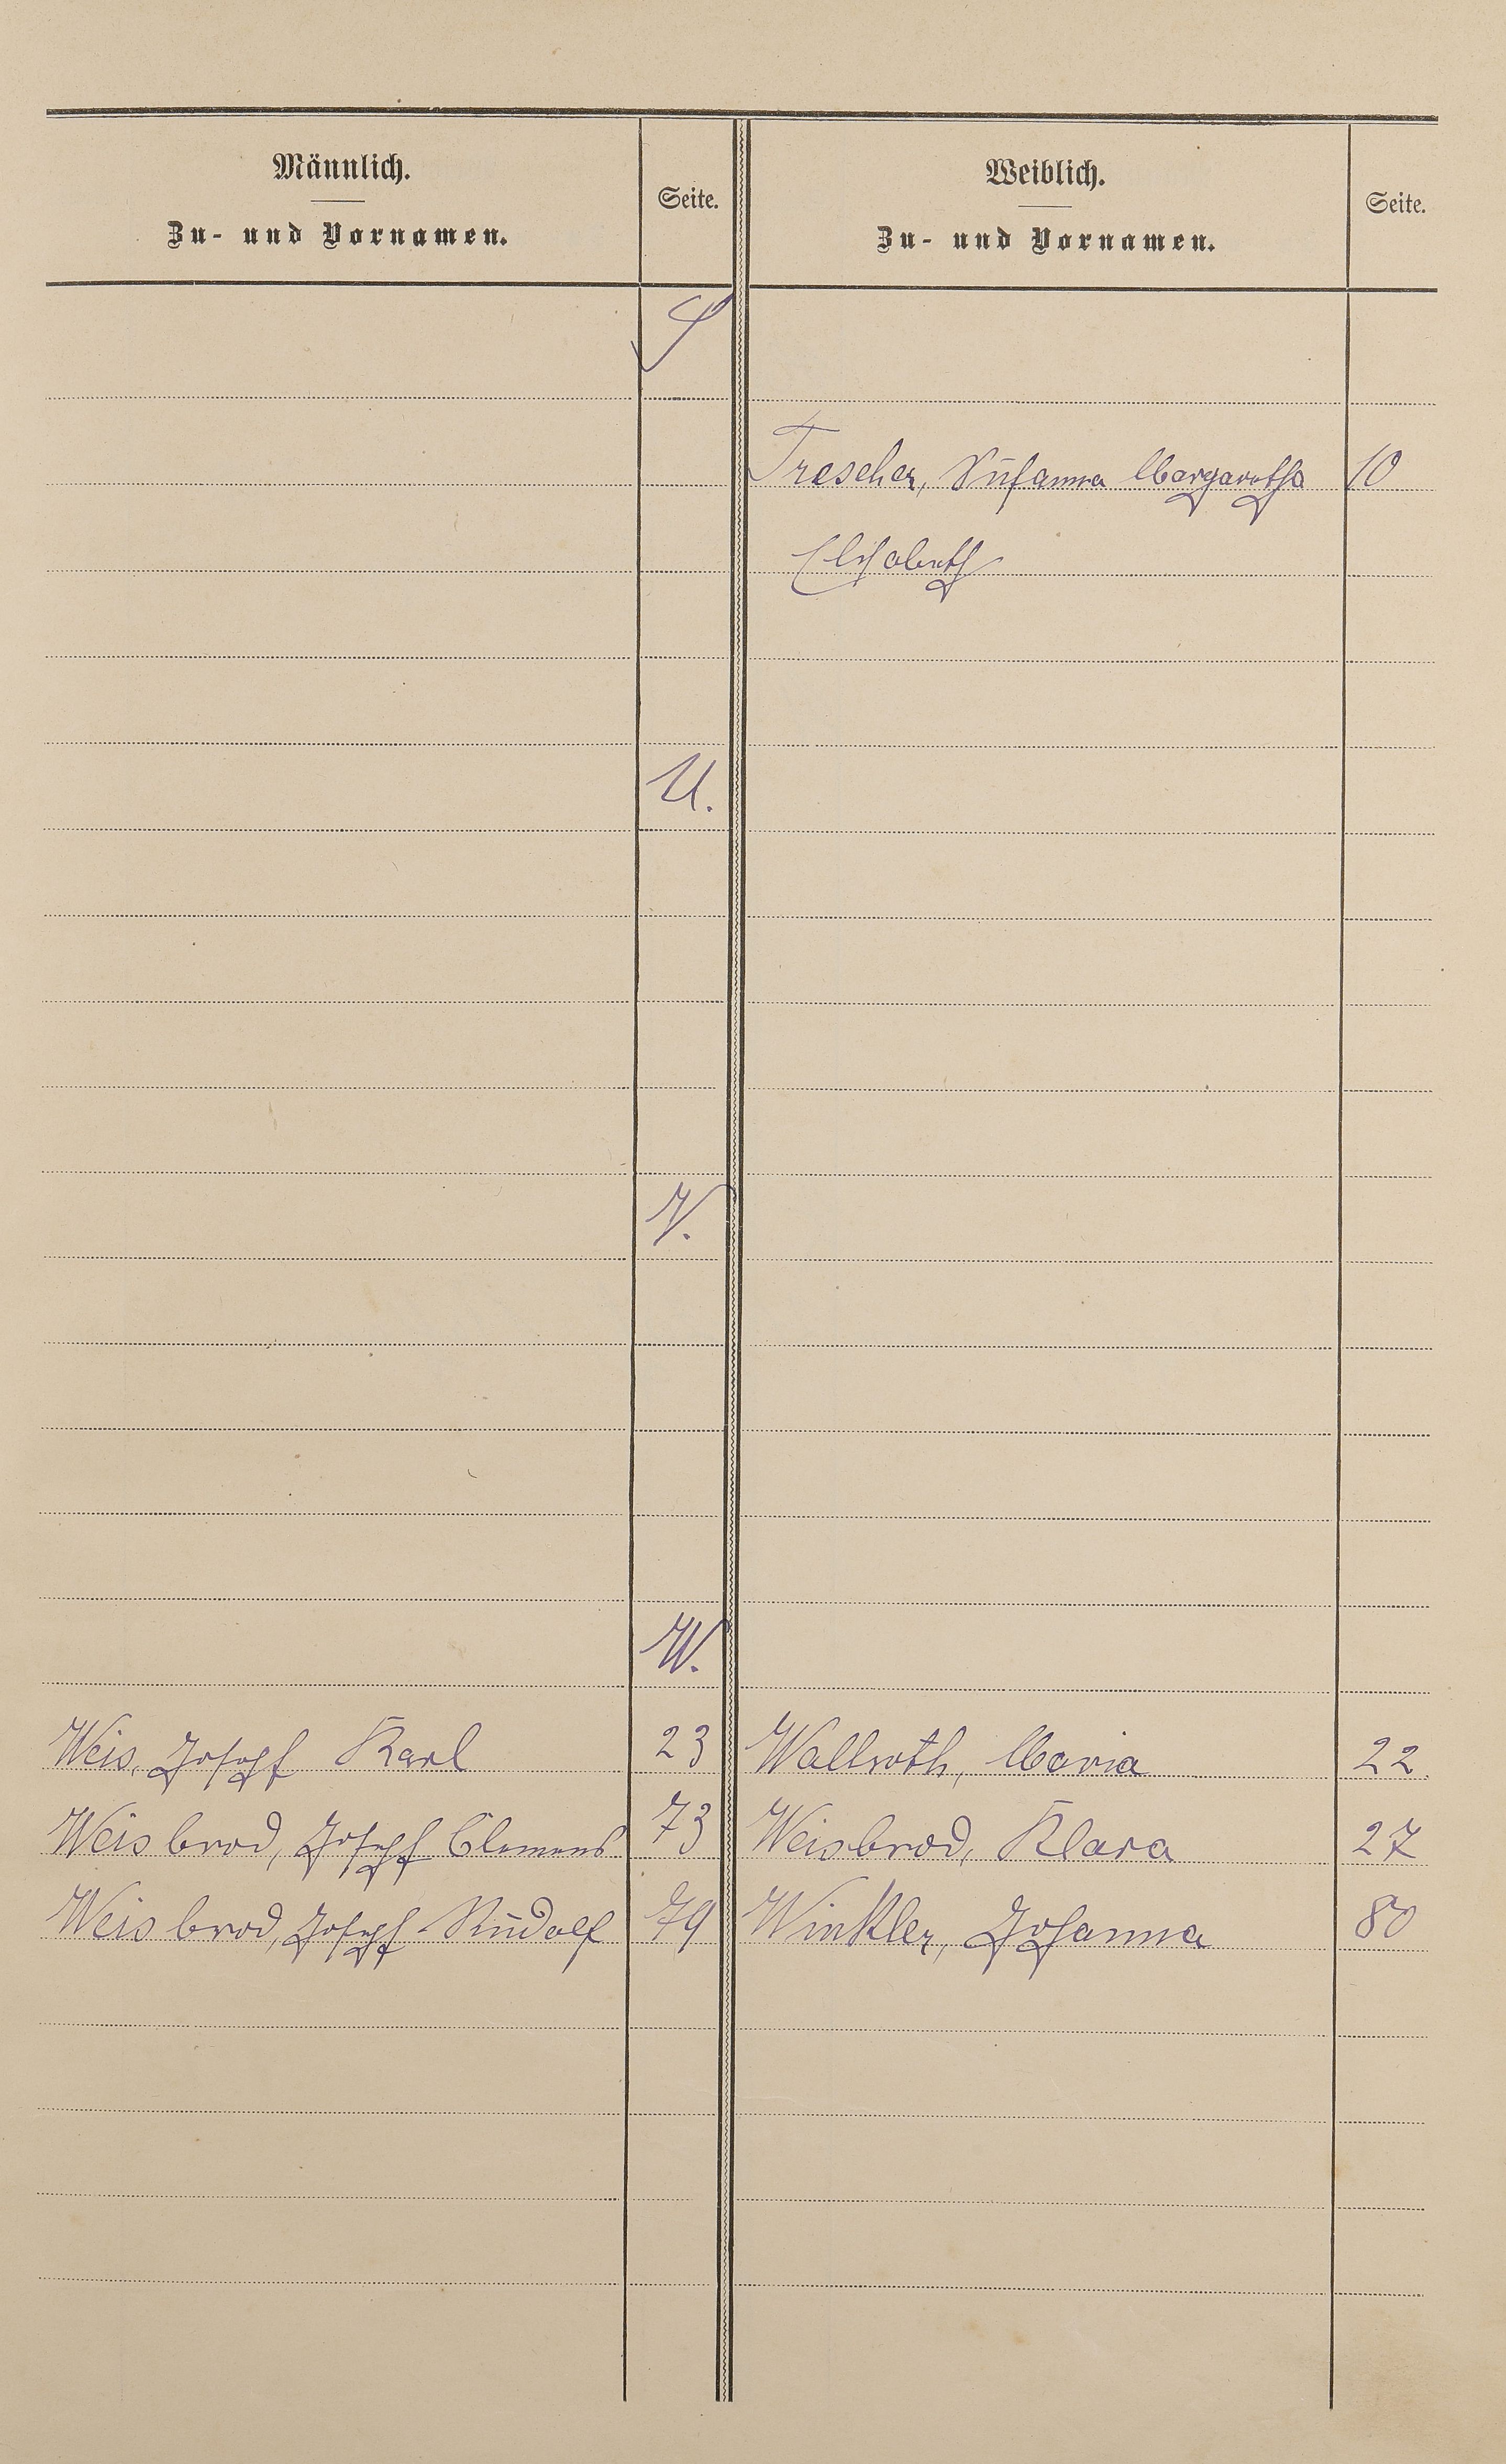 Männlich.
Zu- und Vornamen.
Seite.
Weiblich.
Zu- und Vornamen.
Seite.
T
Trescher, Susanna Margaretha 10
Elisabeth
U.
V.
W.
Weis, Joseph Karl 23 Wallroth, Maria 22.
Weisbrod, Joseph Clemens 73 Weisbrod, Klara 27
Weisbrod, Joseph Rudolf 79 Winkler, Johanna 80